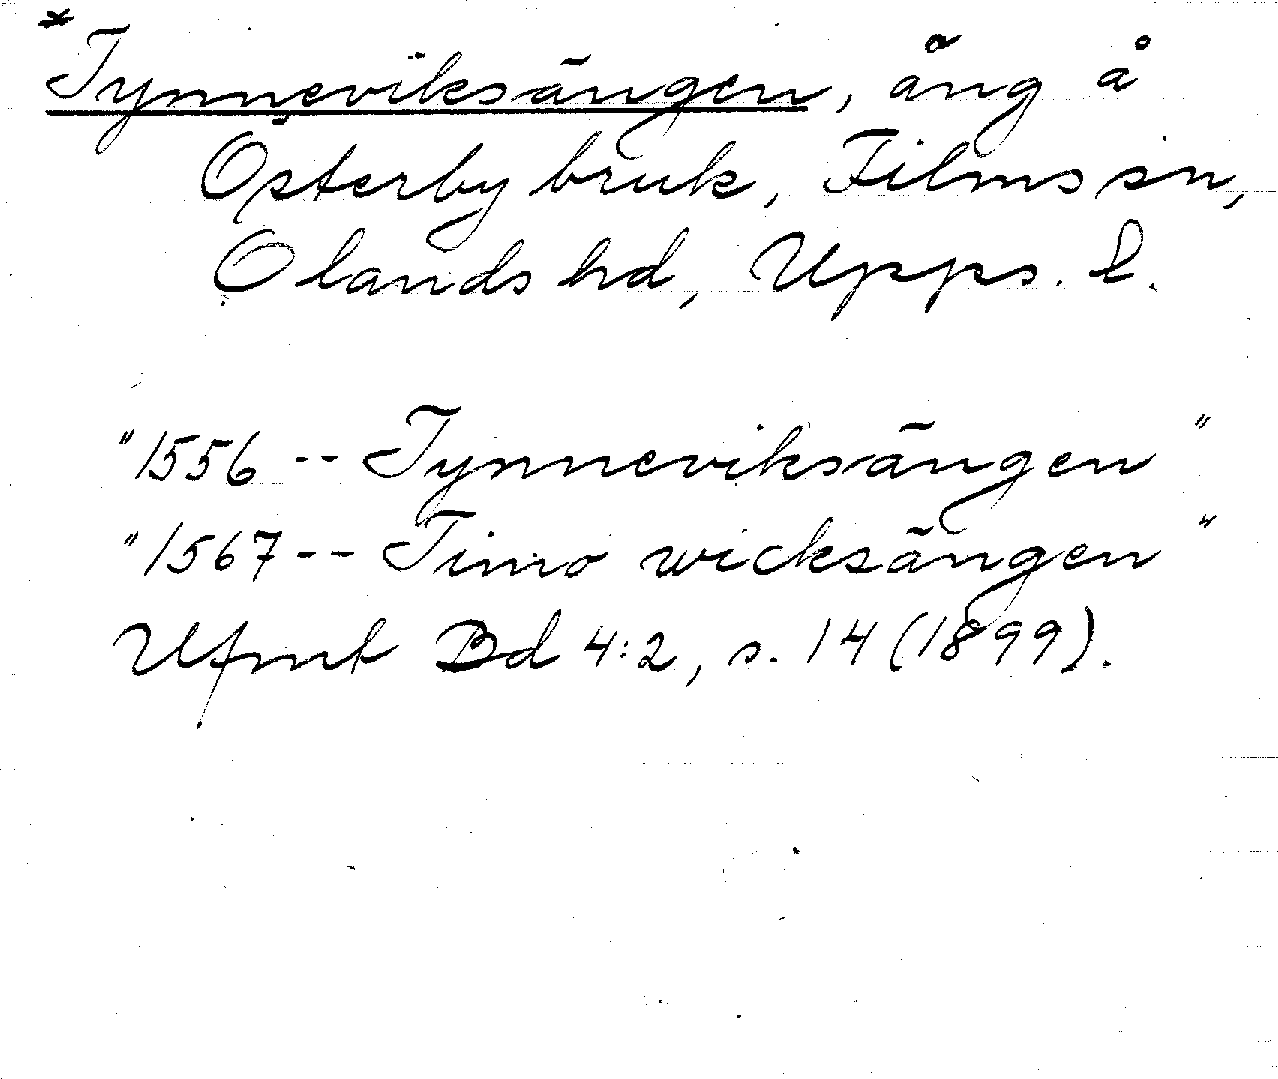 *Tynneviksängen, äng å
Österby bruk, Films sn,
Olands hd, Upps. l.
"1556 -- Tynneviksängen"
"1567 -- Timo wicksängen"
Ufmt Bd 4:2, s. 14 (1899).